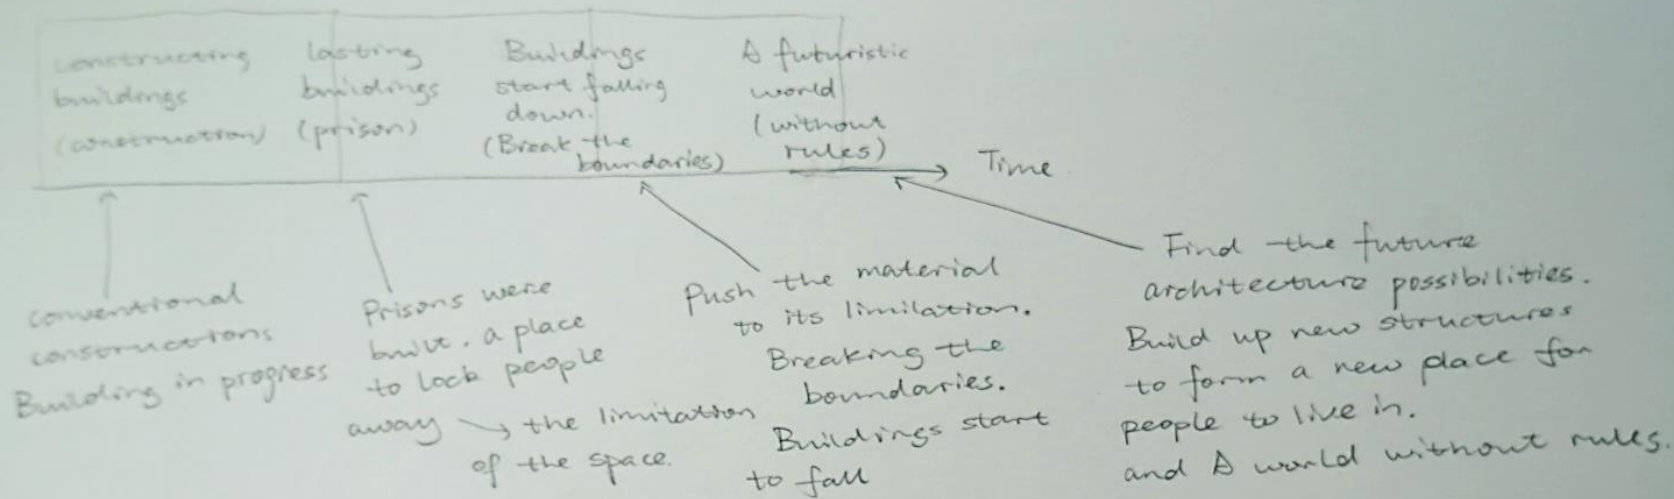 constructing
buildings
(construction)
lasting
buildings
(prison)
Buildings
start falling
down.
(Break the
boundaries)
A futuristic
world
(without
rules)
Time
conventional
constructions
Building in progress
Prisons were
built. a place
to lock people
away ↘ the limitation
of the space.
Push the material
to its limilation.
Breaking the
boundaries.
Buildings start
to fall
Find the future
architecture possibilities.
Build up new structures
to form a new place for
people to live in.
and A world without rules.